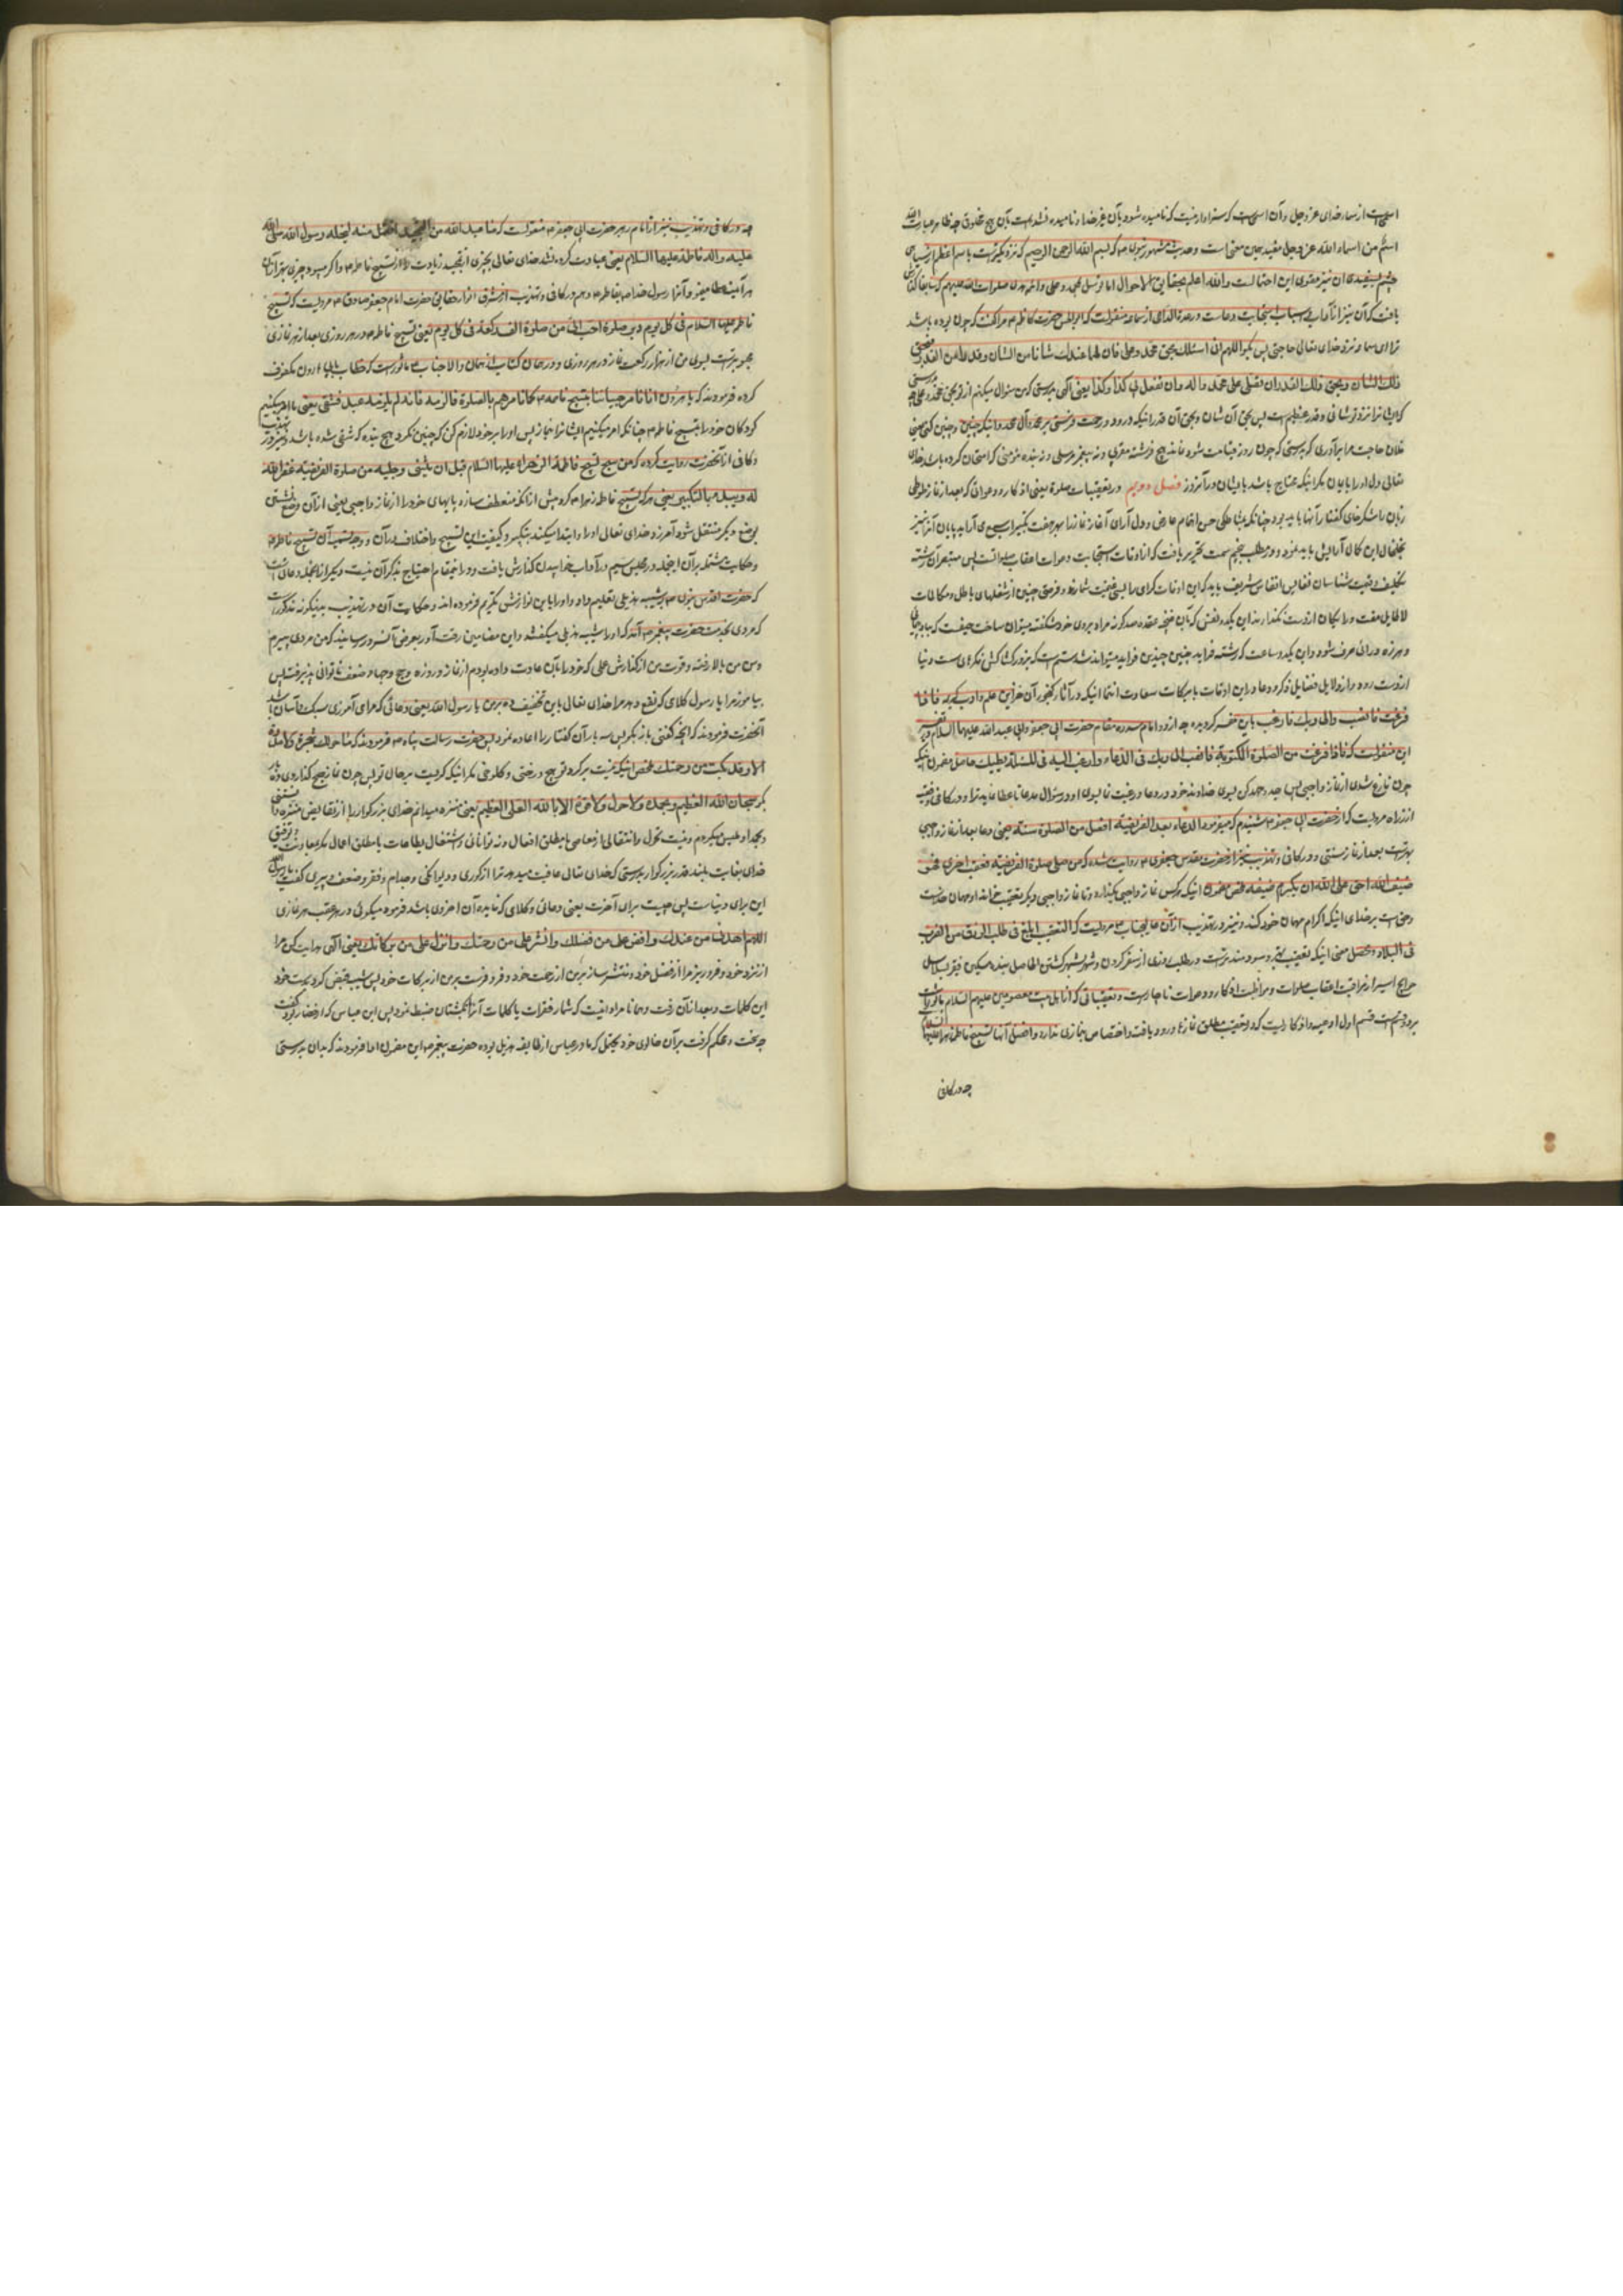 اسمیست از اسماء خدای عز وجل و آن اسمیست که سزاوار نیست که نامیده شود بآن غیر خدا و نامیده نشده است بآن هیچ مخلوق چه ظاهر عبارت الله
اسم من اسماء الله عز وجل مفید همین معنی است وحدیث مشهور نبوی که بسم الله الرحمن الرحیم که نزدیکترست باسم اعظم از سیاهی
چشم بسفیدی آن نیز مقوی این احتمالست والله اعلم بحقایق الاحوال اما توسل بمحمد وعلی وائمه هدی صلوات الله علیهم که سابقا گذارش
یافت که آن نیز از آداب و اسباب استجابت دعاست در عدة الداعی از سماعه منقولست که ابوالحسن حضرت کاظم مرا گفت که چون بوده باشد
ترا ای سماعه نزد خدای تعالی حاجتی پس بگو اللهم انی اسئلک بحق محمد وعلی فان لهما عندک شانا من الشان وقدرا من القدر فبحق
ذلک الشان وبحق ذلک القدر ان تصلی علی محمد وآله وان تفعل بی کذا وکذا یعنی الهی بدرستی که من سؤال میکنم از تو بحق محمد وعلی چه بدرستی
که ایشانرا نزد تو شانی وقدر عظیم است پس بحق آن شان وبحق آن قدر اینکه درود ورحمت فرستی بر محمد وآل محمد واینکه چنین وچنین کنی یعنی
فلان حاجت مرا برآوری که بدرستی که چون روز قیامت شود نماند هیچ فرشته مقرب ونه پیغمبر مرسلی ونه بنده مؤمنی که امتحان کرده باشد خدای
تعالی دل او را بایمان مگر اینکه محتاج باشد بایشان در آن روز فصل دویم در تعقیبات صلوة یعنی اذکار ودعواتی که بعد از نماز طوطی
زبان را شکرخای گفتار آنها باید بود چنانکه مشاطگی حسن انتقام عارض ودل آرای آغاز نماز را بهر هفت تکبیر
این کان آرایش باید نمود ودر مطلب پنجم سمت تحریر یافت که از اوقات استجابت دعوات اعقاب صلواتست پس
وقیت شناسان نفایس انفاس شریف باید که این اوقات گرامی را بسی غنیمت شمارند وفرصتی چنین از شغلهای باطل ومکالمات
لاطایل مفت ورایگان از دست نگذارند این یکدو نفس که بآن غنچه عقده صد گونه مراد بروی خود شکفته میتوان ساخت حیفست که
وهرزه درائی صرف شود واین یکدو ساعت که رشته فراید چنین چندین فواید میتواند شد ستم است که بزور کشاکش فکرهای سست دنیا
از دست رود واز دلایل فضایل ذکر ودعا در این اوقات با برکات سعادت انتما اینکه در آثار گنجور آن خزاین علم وادب کریمه فاذا
فرغت فانصب والی ربک فارغب باین مفسر گردیده چه از دو امام سدره مقام حضرت ابی جعفر وابی عبد الله علیهما السلام در تفسیر
این منقولست که فاذا فرغت من الصلوة المکتوبة فانصب الی ربک فی الدعاء وارغب الیه فی المسئلة یعطیک حاصل مضمون اینکه
چون فارغ شوی از نماز واجبی پس جد وجهد کن بسوی خداوند خود در دعا ورغبت نما بسوی او در سؤال مدعا تا عطا نماید ترا ودر کافی وفقیه
از زراره مرویست که از حضرت ابی جعفر شنیدم که میفرمود الدعاء بعد الفریضة افضل من الصلوة سنة یعنی دعا بعد از نماز واجبی
بهتر است بعد از نماز سنتی ودر کافی وتهذیب نیز از حضرت مقدس جعفری روایت شده که من صلی صلوة الفریضة فعقب اخری فهو
ضیف الله وحق علی الله ان یکرم ضیفه محصل مضمون اینکه هر کس نماز واجبی بگذارد وتا نماز واجبی دیگر تعقیب خواند او مهمان خداست
وحق است بر خدای اینکه اکرام مهمان خود کند ونیز در تهذیب از آن عالیجناب مرویست که التعقیب ابلغ فی طلب الرزق من الضرب
فی البلاد ومحصل معنی اینکه تعقیب بهتر وسودمندتر است در طلب روزی از سفر کردن وشهر بشهر گشتن الحاصل بنده مسکین فقیر
را از مراقبت اعقاب صلوات ومواظبت اذکار ودعوات ناچارست وتعقیباتی که از اهل بیت معصومین علیهم السلام ماثور است
بر دو قسم است قسم اول ادعیه واذکاریست که در تعقیب مطلق نمازها ورود یافته واختصاص بنمازی ندارد وافضل آنها تسبیح فاطمه زهرا علیها السلام
چه در کافی
چه در کافی وتهذیب نیز از امام رهبر حضرت ابی جعفر منقولست که ما عبد الله من التمجید افضل منه لنحله رسول الله صلی الله
علیه وآله فاطمة علیها السلام یعنی عبادت کرده نشد خدای تعالی بچیزی از تمجید زیادتر از تسبیح فاطمه واگر میبود چیزی بهتر از آن
هر آینه عطا میفرمود آنرا رسول خدا بفاطمه وهم در کافی وتهذیب از مشرق انوار حقایق حضرت امام جعفر صادق مرویست که تسبیح
فاطمة علیها السلام فی کل یوم دبر صلوة احب الی من صلوة الف رکعة فی کل یوم یعنی تسبیح فاطمه در هر روزی بعد از هر نمازی
محبوبترست بسوی من از هزار رکعت نماز در هر روزی ودر همان کتاب از همان والاجناب ماثورست که خطاب بابی هارون مکفوف
کرده فرمودند که یا با هرون انا نامر صبیاننا بتسبیح فاطمة کما نامرهم بالصلوة فالزمه فانه لم یلزمه عبد فشقی یعنی ما امر میکنیم
کودکان خود را بتسبیح فاطمه چنانکه امر میکنیم ایشانرا بنماز پس او را بر خود لازم کن که چنین نکرد هیچ بنده که شقی شده باشد ونیز در تهذیب
وکافی از آنحضرت روایت کرده که من سبح تسبیح فاطمة الزهراء علیها السلام قبل ان یثنی رجلیه من صلوة الفریضة غفر الله
له ویبدء بالتکبیر یعنی هر که تسبیح فاطمه زهرا کرد پیش از آنکه منعطف سازد پایهای خود را از نماز واجبی یعنی از آن وضع نشستن
بوضع دیگر منتقل شود آمرزد خدای تعالی او را وابتدا میکند بتکبیر وکیفیت این تسبیح واختلاف در آن ووجه تسمیه آن بتسبیح فاطمه
وحکایت مشتمله بر آن اینجمله در مجلس سیم در آداب خوابیدن گذارش یافت ودر اینمقام احتیاج بذکر آن نیست ودیگر از آنجمله دعائی است
که حضرت اقدس نبوی شیبه هذلی تعلیم داد واو را باین نوازش تکریم فرموده اند وحکایت آن در تهذیب بدینگونه مذکور است
که مردی بخدمت حضرت پیغمبر آمد که او را شیبه هذلی میگفتند واین مضامین رقت آور بعرض آنسرور رسانید که من مردی پیرم
وسن من بالا رفته وقوت من از گذارش عملی که خود را بآن عادت داده بودم از نماز وروزه وحج وجهاد ضعف ناتوانی پذیرفته پس
بیاموز مرا یا رسول کلامی که نفع دهد مرا خدای تعالی باین تخفیف ده بر من یا رسول الله یعنی دعائی که مرا می آموزی سبک وآسان باشد
آنحضرت فرمودند که آنچه گفتی باز بگو پس سه بار آن گفتار را اعاده نمود پس حضرت رسالت پناه فرمودند که ما حولک شجرة ولا مدرة
الا وقد بکت من رحمتک ملخص اینکه نیست بر گرد تو هیچ درختی وکلوخی مگر اینکه گریست بر حال تو پس چون نماز صبح گذاردی ده بار
بگو سبحان الله العظیم وبحمده ولا حول ولا قوة الا بالله العلی العظیم یعنی منزه میدانم خدای بزرگوار را از نقایص
وبحمد او تلبس میگردم ونیست تحول وانتقالی از معاصی یا مطلق افعال ونه توانائی واشتغال بطاعات یا مطلق اعمال مگر بمعاونت وتوفیق
خدای بغایت بلند قدر بزرگوار بدرستی که خدای تعالی عافیت میدهد ترا از کوری ودیوانگی وجذام وفقر وضعف پیری گفت یا رسول الله
این برای دنیاست پس چیست برای آخرت یعنی دعائی وکلامی که فایده آن اخروی باشد فرمود میگوئی در عقب هر نمازی
اللهم اهدنی من عندک وافض علی من فضلک وانشر علی من رحمتک وانزل علی من برکاتک یعنی الهی هدایت کن مرا
از نزد خود وفرو ریز مرا از فضل خود ومنتشر ساز بر من از رحمت خود وفرو فرست بر من از برکات خود پس شیبه قبض کرد بدست خود
این کلمات وبعد از آن رفت وهمانا مراد اینست که شمار فقرات یا کلمات آنرا بانگشتان ضبط نمود پس ابن عباس که از حضار بود گفت
چه سخت ومحکم گرفت بر آن خالوی خود محتمل که مادر عباس از طایفه هذیل بوده حضرت پیغمبر این مضمون ادا فرمودند که بدان بدرستی